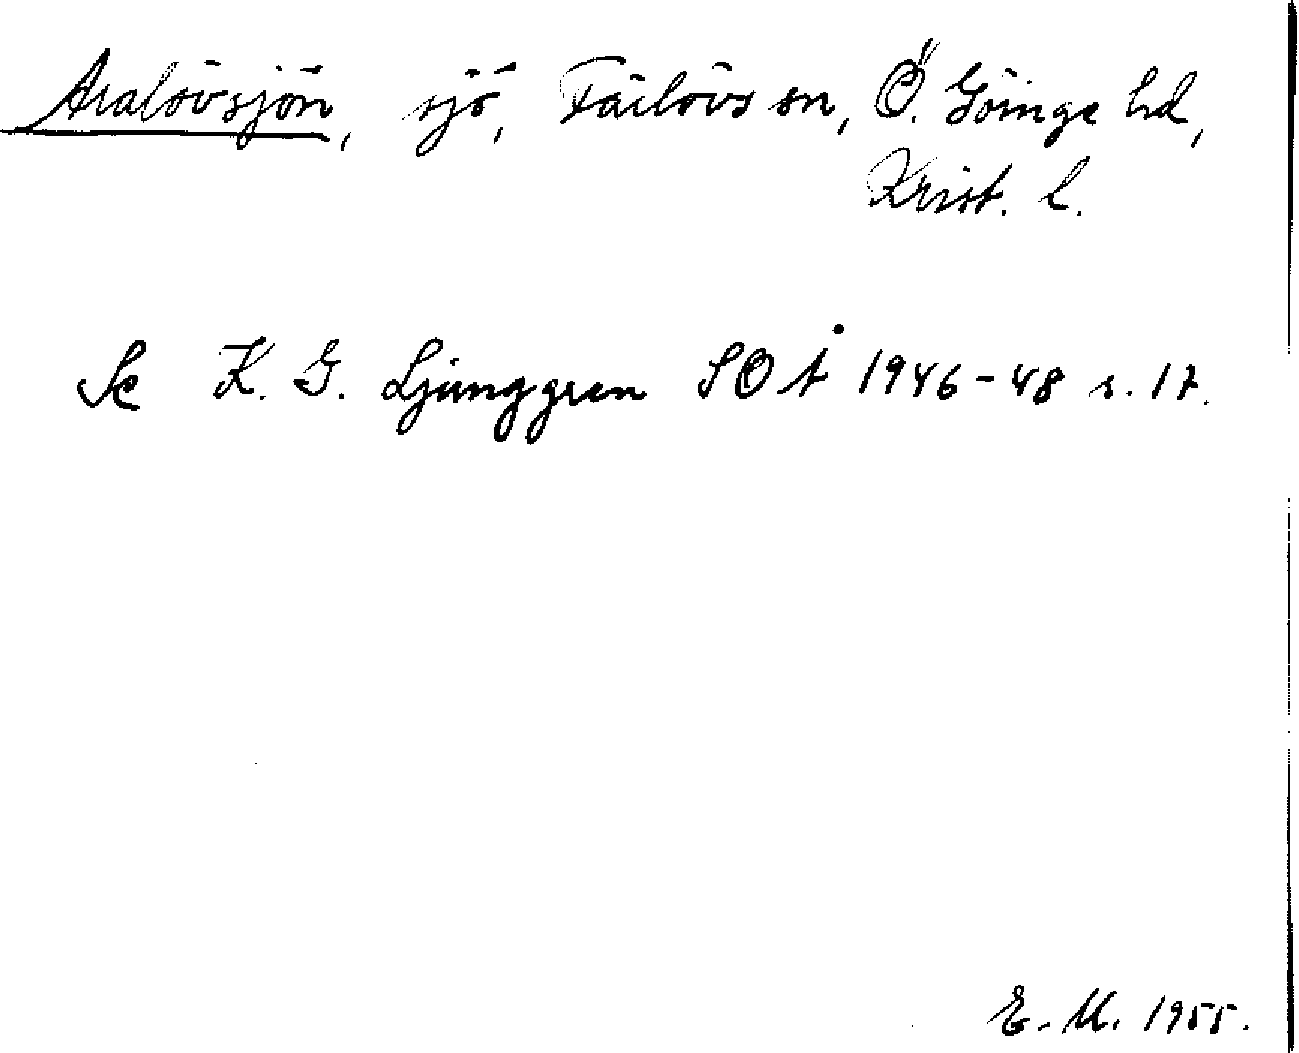 Aralövsjön, sjö, Färlövs sn, Ö. Göinge hd,
Krist. l.
Se K. G. Ljunggren SOÅ 1946-48 s. 17.
E. M. 1955.